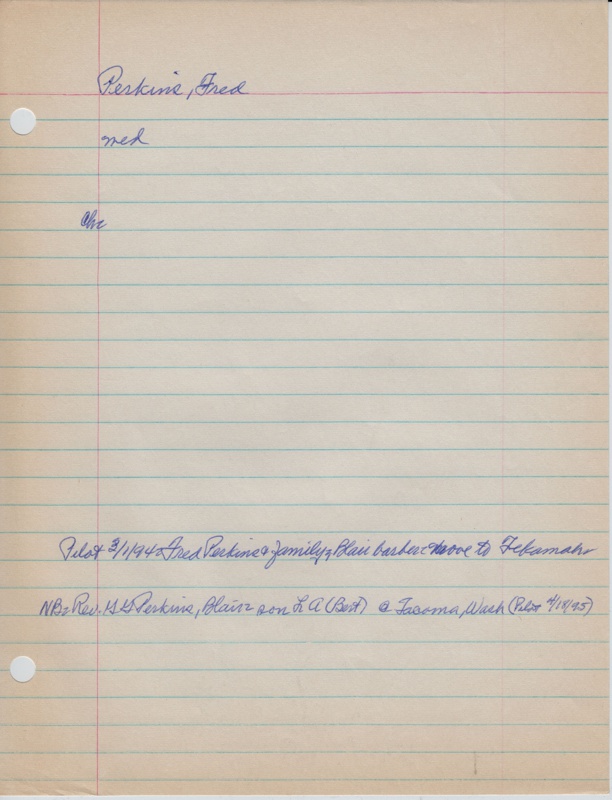 Perkins, Fred
med
Chc
Pilot 3/1/94 - Fred Perkins & family, Blair barber move to Tekamah
NB: Rev. Perkins, Blair - son L A (Bert) @ Tacoma, Wash (Pilot 4/18/95)